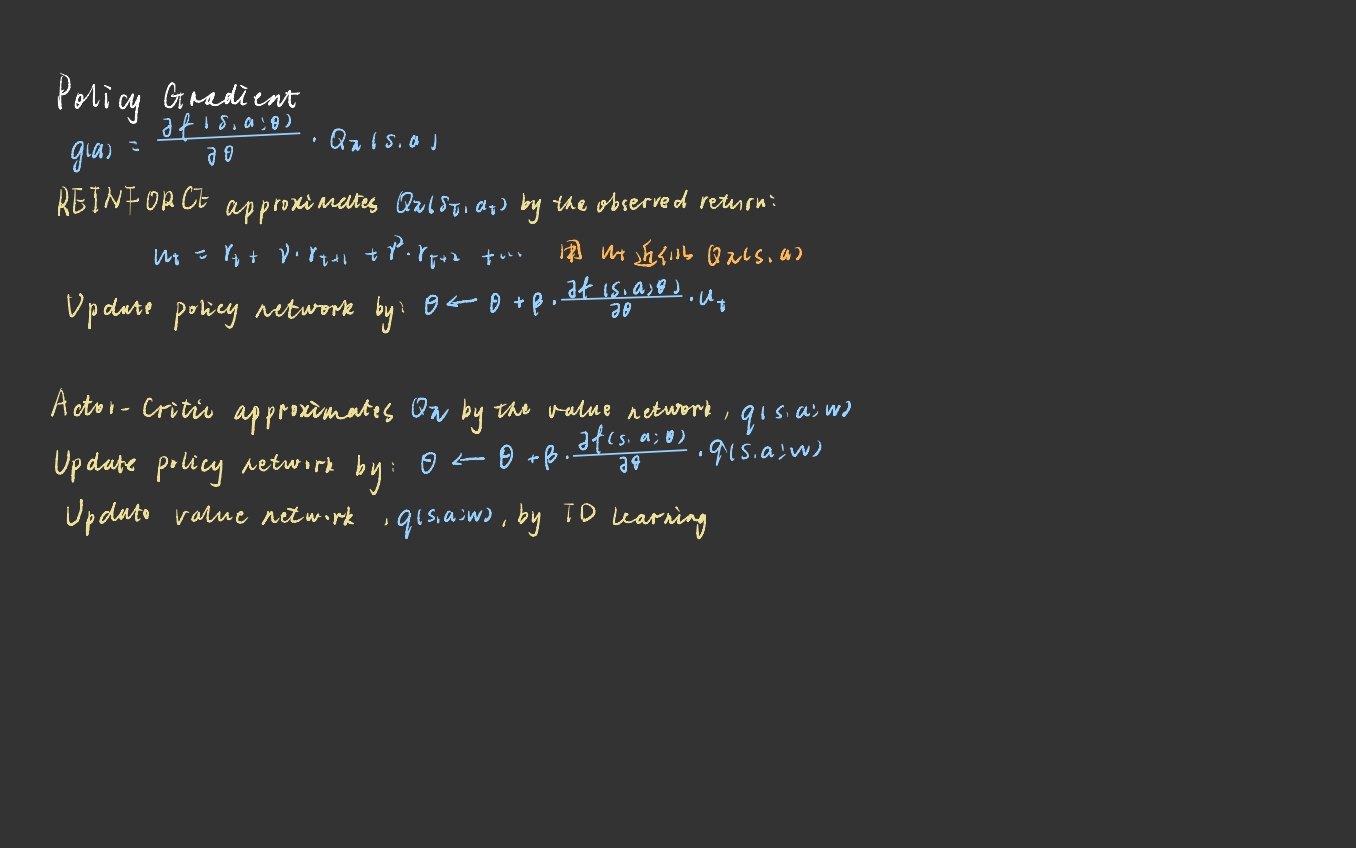 Policy Gradient
g(a) = ∂f(s,a;θ)/∂θ · Qπ(s,a)
REINFORCE approximates Qπ(s_t, a_t) by the observed return:
u_t = r_t + γ·r_{t+1} + γ²·r_{t+2} + ... 用 u_t 近似 Qπ(s,a)
Update policy network by: θ ← θ + β · ∂f(s,a;θ)/∂θ · u_t
Actor-Critic approximates Qπ by the value network, q(s,a;w)
Update policy network by: θ ← θ + β · ∂f(s,a;θ)/∂θ · q(s,a;w)
Update value network, q(s,a;w), by TD learning